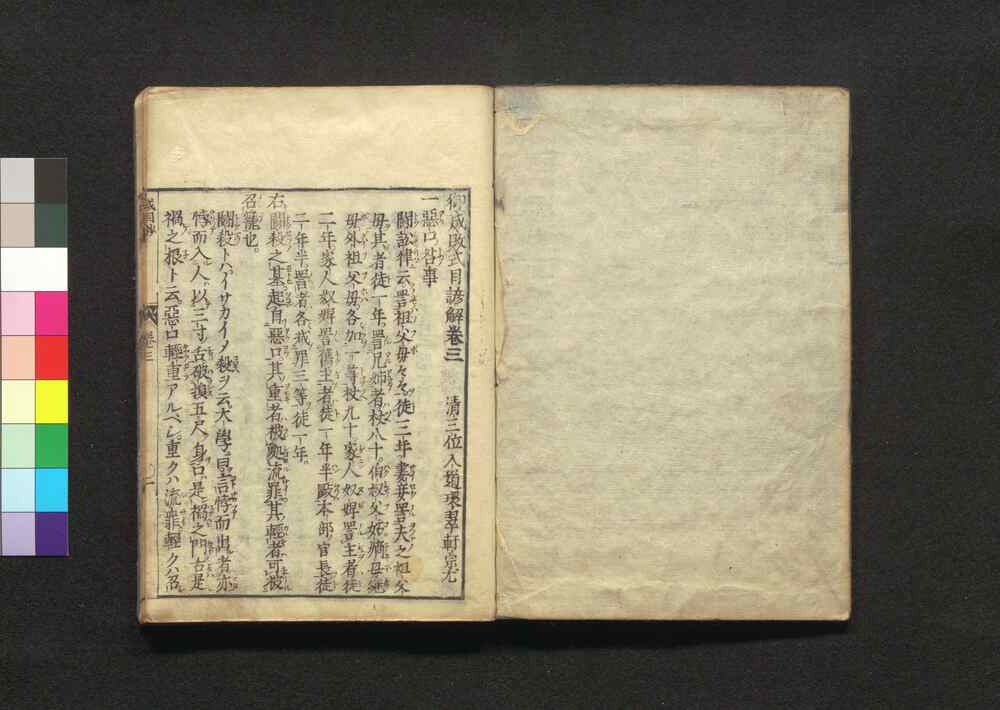 御成敗式目諺解卷三　清三位入道環翠軒宗尤
一惡口咎事
鬪訟律云詈祖父母々々徒三年妻妾詈夫之祖父
母其者徒一年詈兄姉者杖八十伯叔父姑嫡母繼
母外祖父母各加一等杖九十家人奴婢詈主者徒
二年家人奴婢詈舊主者徒一年半毆本部官長徒
二年半詈者各減罪三等徒一年。
右鬪殺之基起自惡口其重者被處流罪其輕者可被
召籠也。
鬪殺トハイサカイノ殺ヲ云大學曰言悖而出者亦
悖而入人以三寸舌破損五尺身口是禍之門舌是
禍之根ト云惡口輕重アルベシ重クハ流罪輕クハ召
式目抄
卷三
一